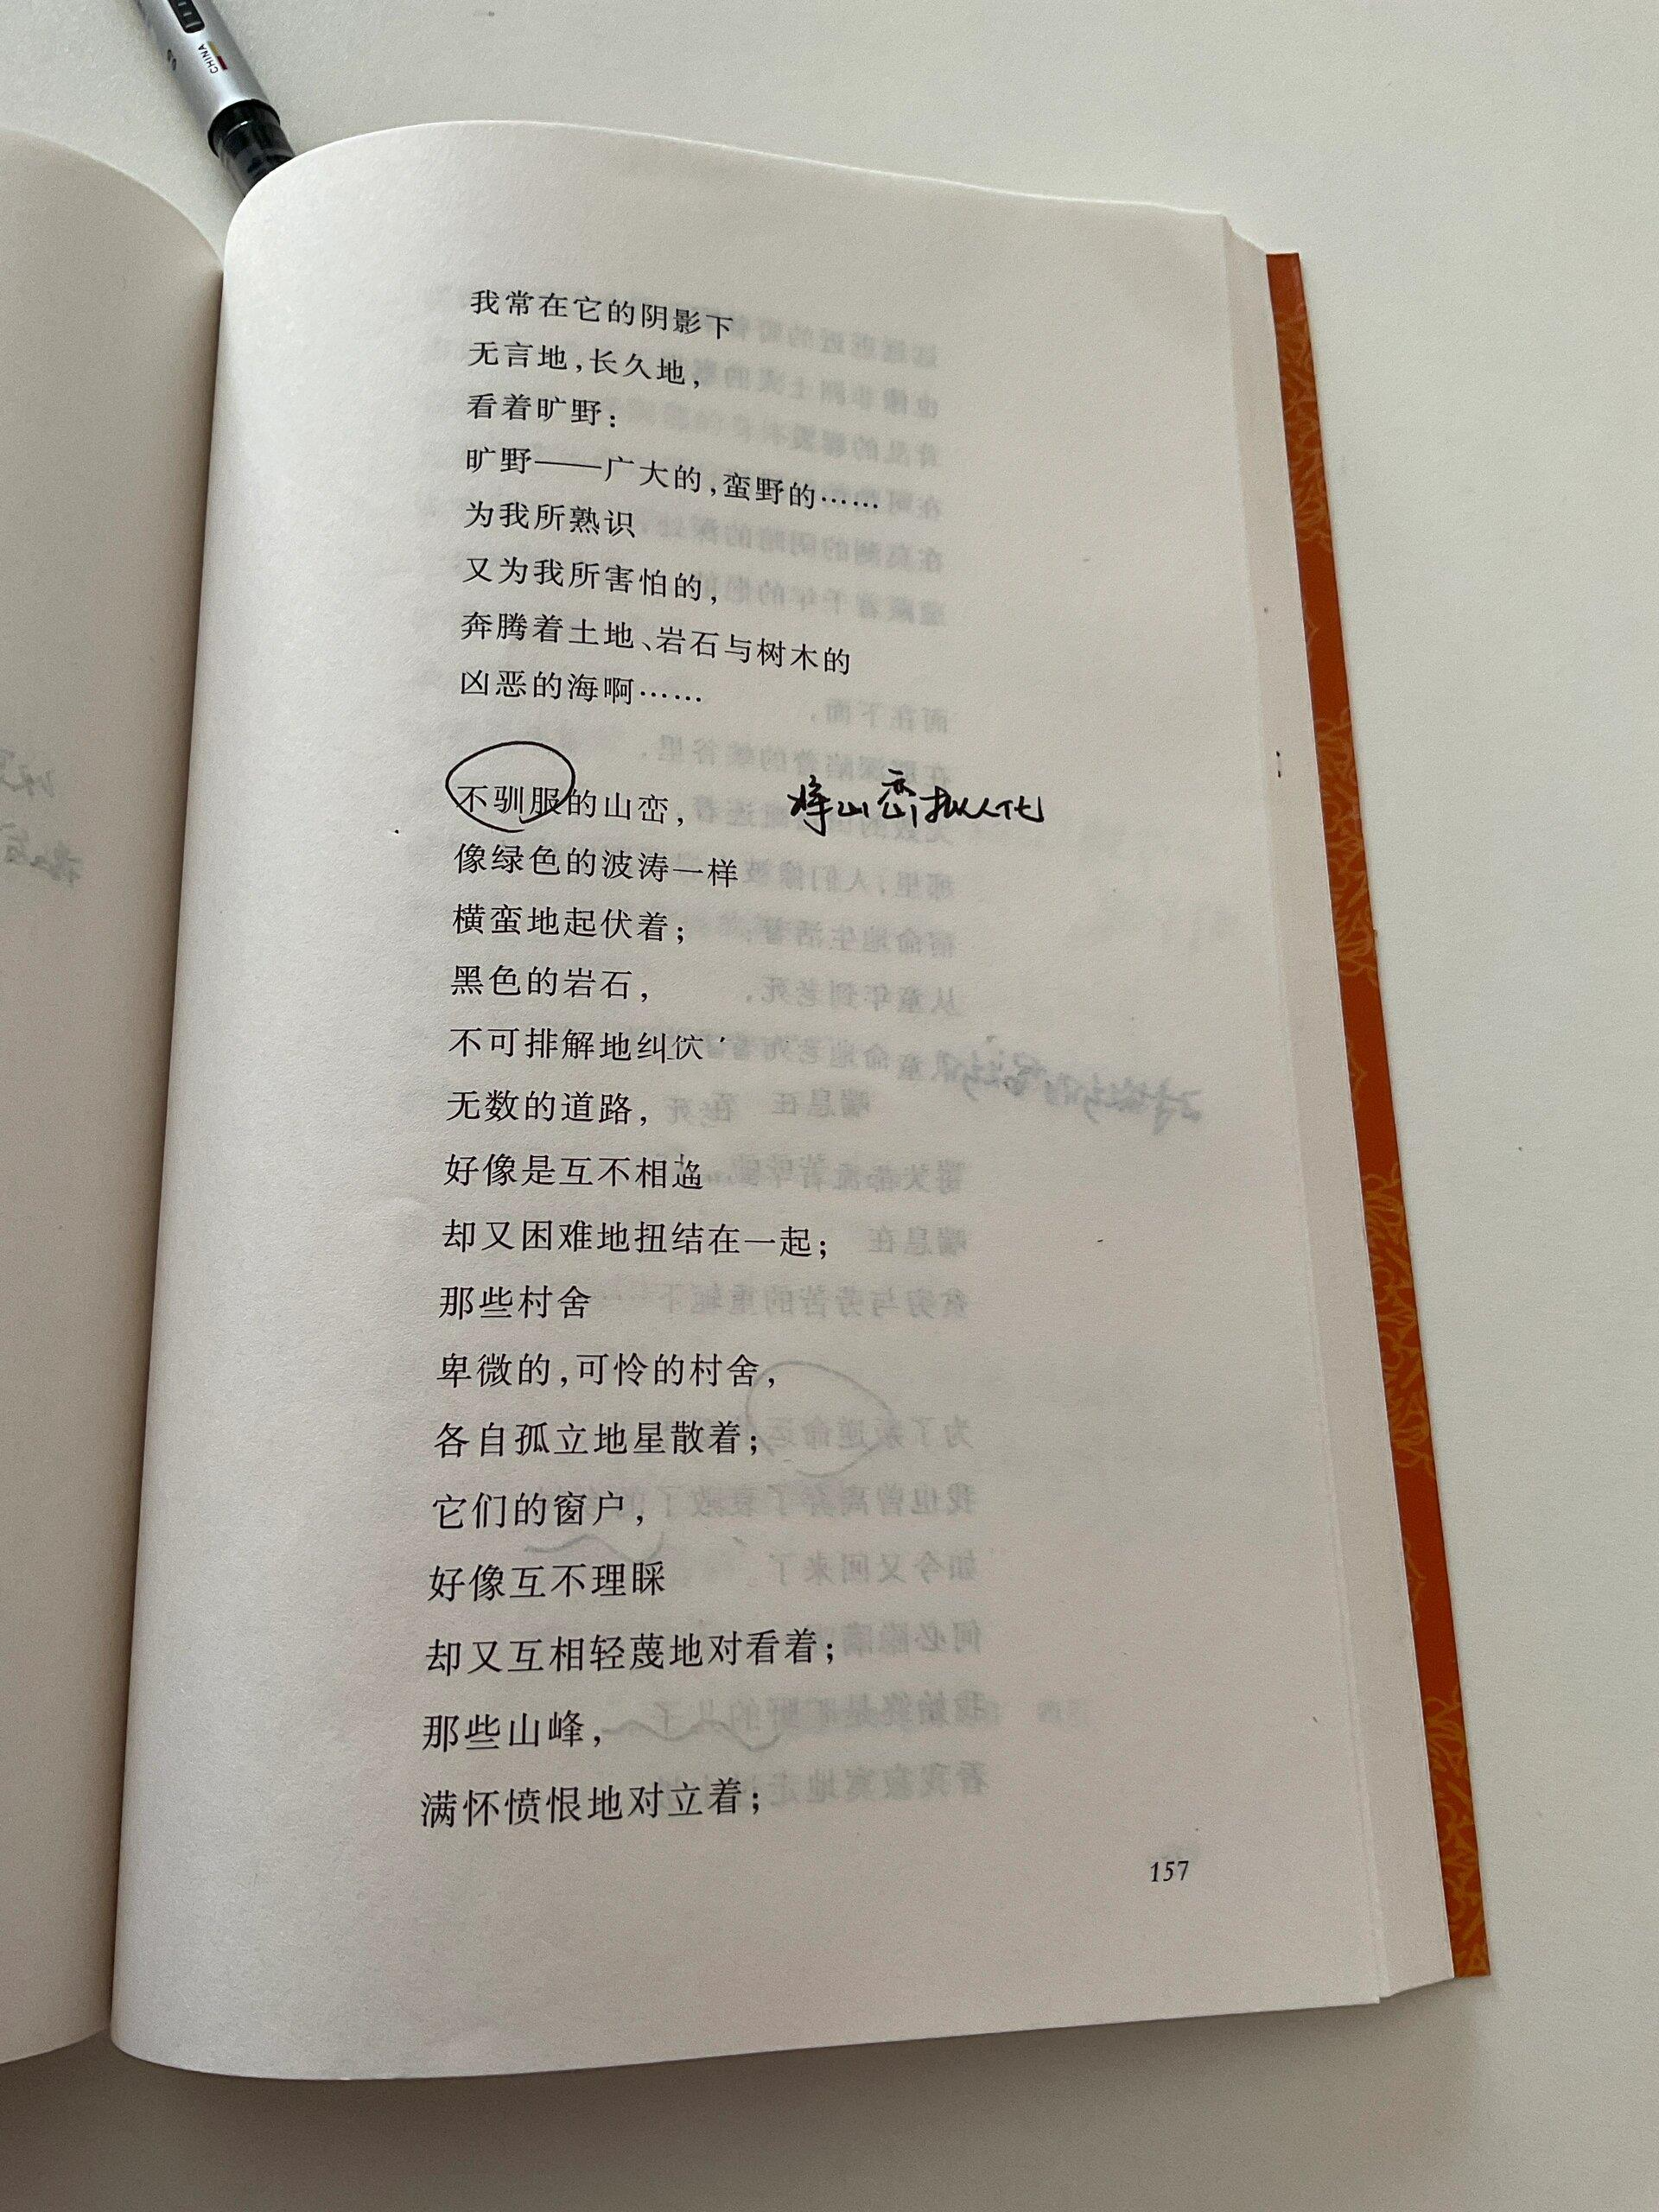 CHINA
我常在它的阴影下
无言地,长久地,
看着旷野:
旷野——广大的,蛮野的……
为我所熟识
又为我所害怕的,
奔腾着土地、岩石与树木的
凶恶的海啊……
不驯服的山峦, 将山峦拟人化
像绿色的波涛一样
横蛮地起伏着;
黑色的岩石,
不可排解地纠
无数的道路,
好像是互不相
却又困难地扭结在一起;
那些村舍
卑微的,可怜的村舍,
各自孤立地星散着;
它们的窗户,
好像互不理睬
却又互相轻蔑地对看着;
那些山峰,
满怀愤恨地对立着;
157